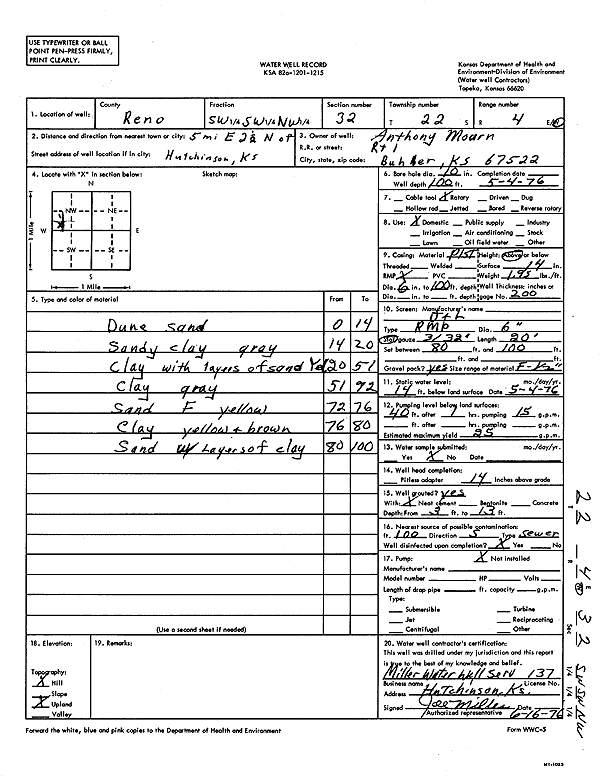 USE TYPEWRITER OR BALL
POINT PEN-PRESS FIRMLY,
PRINT CLEARLY.
WATER WELL RECORD
KSA 82a-1201-1215
Kansas Department of Health and
Environment-Division of Environment
(Water well Contractors)
Topeka, Kansas 66620
1. Location of well:
County
Reno
Fraction
SW¼SW¼NW¼
Section number
32
Township number
T 22 S
Range number
R 4 E/W
2. Distance and direction from nearest town or city: 5 mi E 2½ N of
Street address of well location if in city: Hutchinson, Ks
3. Owner of well: Anthony Mourn
R.R. or street: Rt 1
City, state, zip code: Buhler, KS 67522
4. Locate with "X" in section below:
Sketch map:
N
NW NE
W E
SW SE
S
1 Mile
1 Mile
6. Bore hole dia. 10 in. Completion date
Well depth 100 ft. 5-4-76
7. Cable tool X Rotary Driven Dug
Hollow rod Jetted Bored Reverse rotary
8. Use: X Domestic Public supply Industry
Irrigation Air conditioning Stock
Lawn Oil field water Other
9. Casing: Material Plst Height: Above or below
Threaded Welded Surface 14 in.
RMP X PVC Weight 1.95 lbs./ft.
Dia. 6 in. to 100 ft. depth Wall Thickness: inches or
Dia. in. to ft. depth gage No. 200
5. Type and color of material From To
Dune sand 0 14
Sandy clay gray 14 20
Clay with layers of sand 20 51
Clay gray 51 92
Sand F yellow 72 76
Clay yellow + brown 76 80
Sand w/ Layers of clay 80 100
(Use a second sheet if needed)
10. Screen: Manufacturer's name
Type RMP Dia. 6"
Slot/gauze 3/32" Length 20'
Set between 80 ft. and 100 ft.
ft. and ft.
Gravel pack? yes Size range of material F-½"
11. Static water level: mo./day/yr.
14 ft. below land surface Date 5-4-76
12. Pumping level below land surfaces:
40 ft. after 1 hrs. pumping 15 g.p.m.
ft. after hrs. pumping g.p.m.
Estimated maximum yield 25 g.p.m.
13. Water sample submitted: mo./day/yr.
Yes X No Date
14. Well head completion:
Pitless adapter 14 Inches above grade
15. Well grouted? yes
With: X Neat cement Bentonite Concrete
Depth: From 3 ft. to 13 ft.
16. Nearest source of possible contamination:
ft. 100 Direction S Type Sewer
Well disinfected upon completion? X Yes No
17. Pump: X Not installed
Manufacturer's name
Model number HP Volts
Length of drop pipe ft. capacity g.p.m.
Type:
Submersible Turbine
Jet Reciprocating
Centrifugal Other
18. Elevation:
Topography:
X Hill
Slope
X Upland
Valley
19. Remarks:
20. Water well contractor's certification:
This well was drilled under my jurisdiction and this report
is true to the best of my knowledge and belief.
Miller Water Well Serv 137
Business name License No.
Address Hutchinson, Ks.
Signed Joe Miller Date 6-16-76
Authorized representative
Forward the white, blue and pink copies to the Department of Health and Environment
Form WWC-5
T 22 - R 4 E W Sec 32 SW SW NW
1/4 1/4 1/4